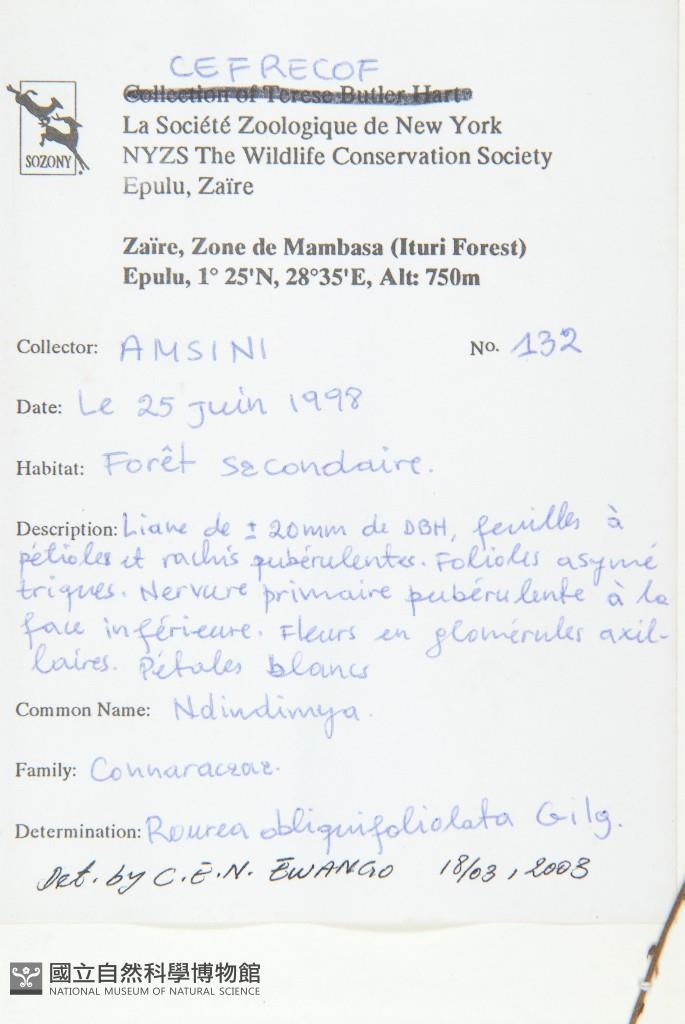 CEFRECOF
Collection of Terese Butler Hart
SOZONY
La Société Zoologique de New York
NYZS The Wildlife Conservation Society
Epulu, Zaïre
Zaïre, Zone de Mambasa (Ituri Forest)
Epulu, 1° 25'N, 28°35'E, Alt: 750m
Collector: AMSINI No. 132
Date: Le 25 juin 1998
Habitat: Forêt secondaire.
Description: Liane de ± 20mm de DBH, feuilles à
pétioles et rachis pubérulentes. Folioles asymé
triques. Nervure primaire pubérulente à la
face inférieure. Fleurs en glomérules axil-
laires. Pétales blancs
Common Name: Ndindimya.
Family: Connaraceae.
Determination: Rourea obliquifoliolata Gilg.
Det. by C.E.N. EWANGO 18/03, 2003
國立自然科學博物館
NATIONAL MUSEUM OF NATURAL SCIENCE